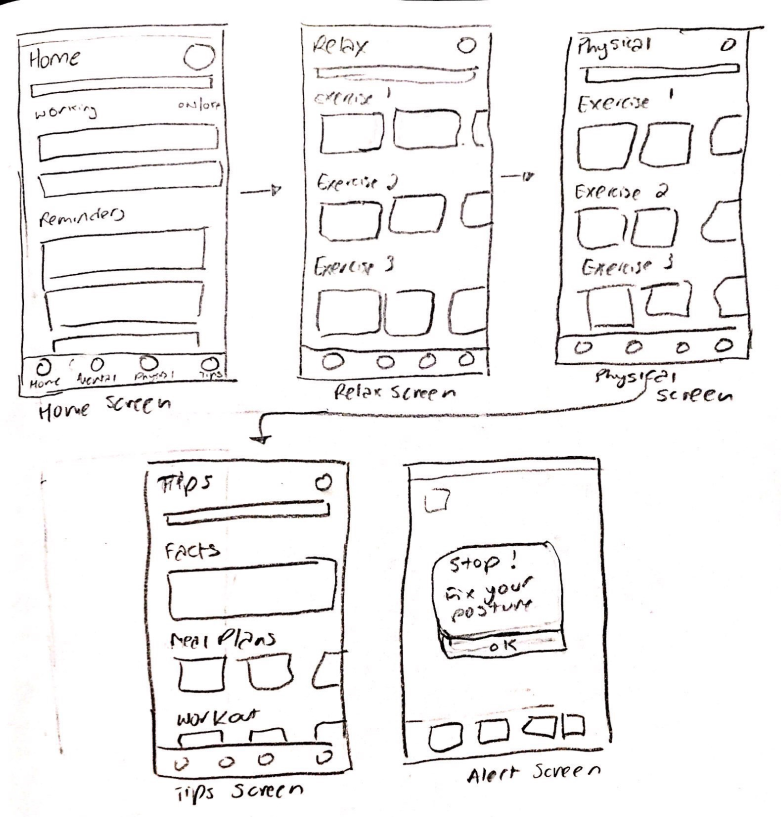 Home
working on/off
Reminders
Home Mental Physical Tips
Home Screen
Relax
exercise 1
Exercise 2
Exercise 3
Relax Screen
Physical
Exercise 1
Exercise 2
Exercise 3
Physical
Screen
Tips
Facts
Meal Plans
Workout
Tips Screen
Stop!
Fix your
posture
OK
Alert Screen